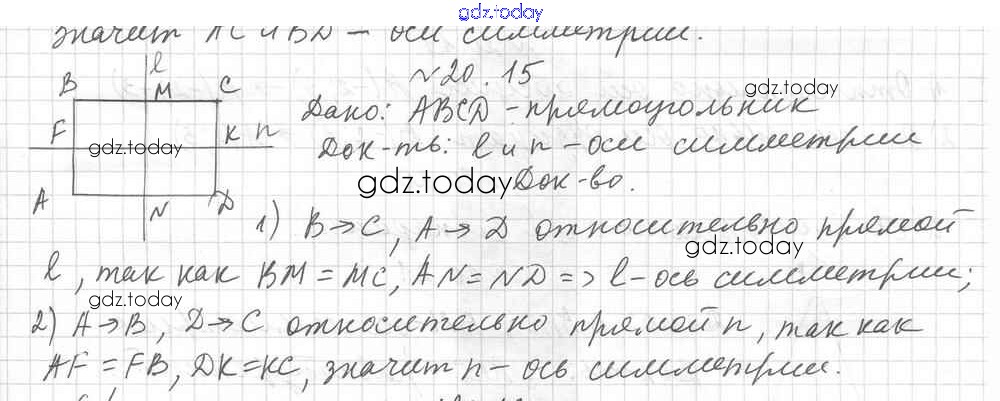 gdz.today
значит AC и BD – оси симметрии.
№20.15
l
B M C
gdz.today
Дано: ABCD – прямоугольник
F K n
gdz.today
Док-ть: l и n – оси симметрии
gdz.today Док-во.
A N D
1) B→C, A→D относительно прямой
gdz.today
l, так как BM = MC, AN = ND => l – ось симметрии;
gdz.today
2) A→B, D→C относительно прямой n, так как
AF = FB, DK = KC, значит n – ось симметрии.